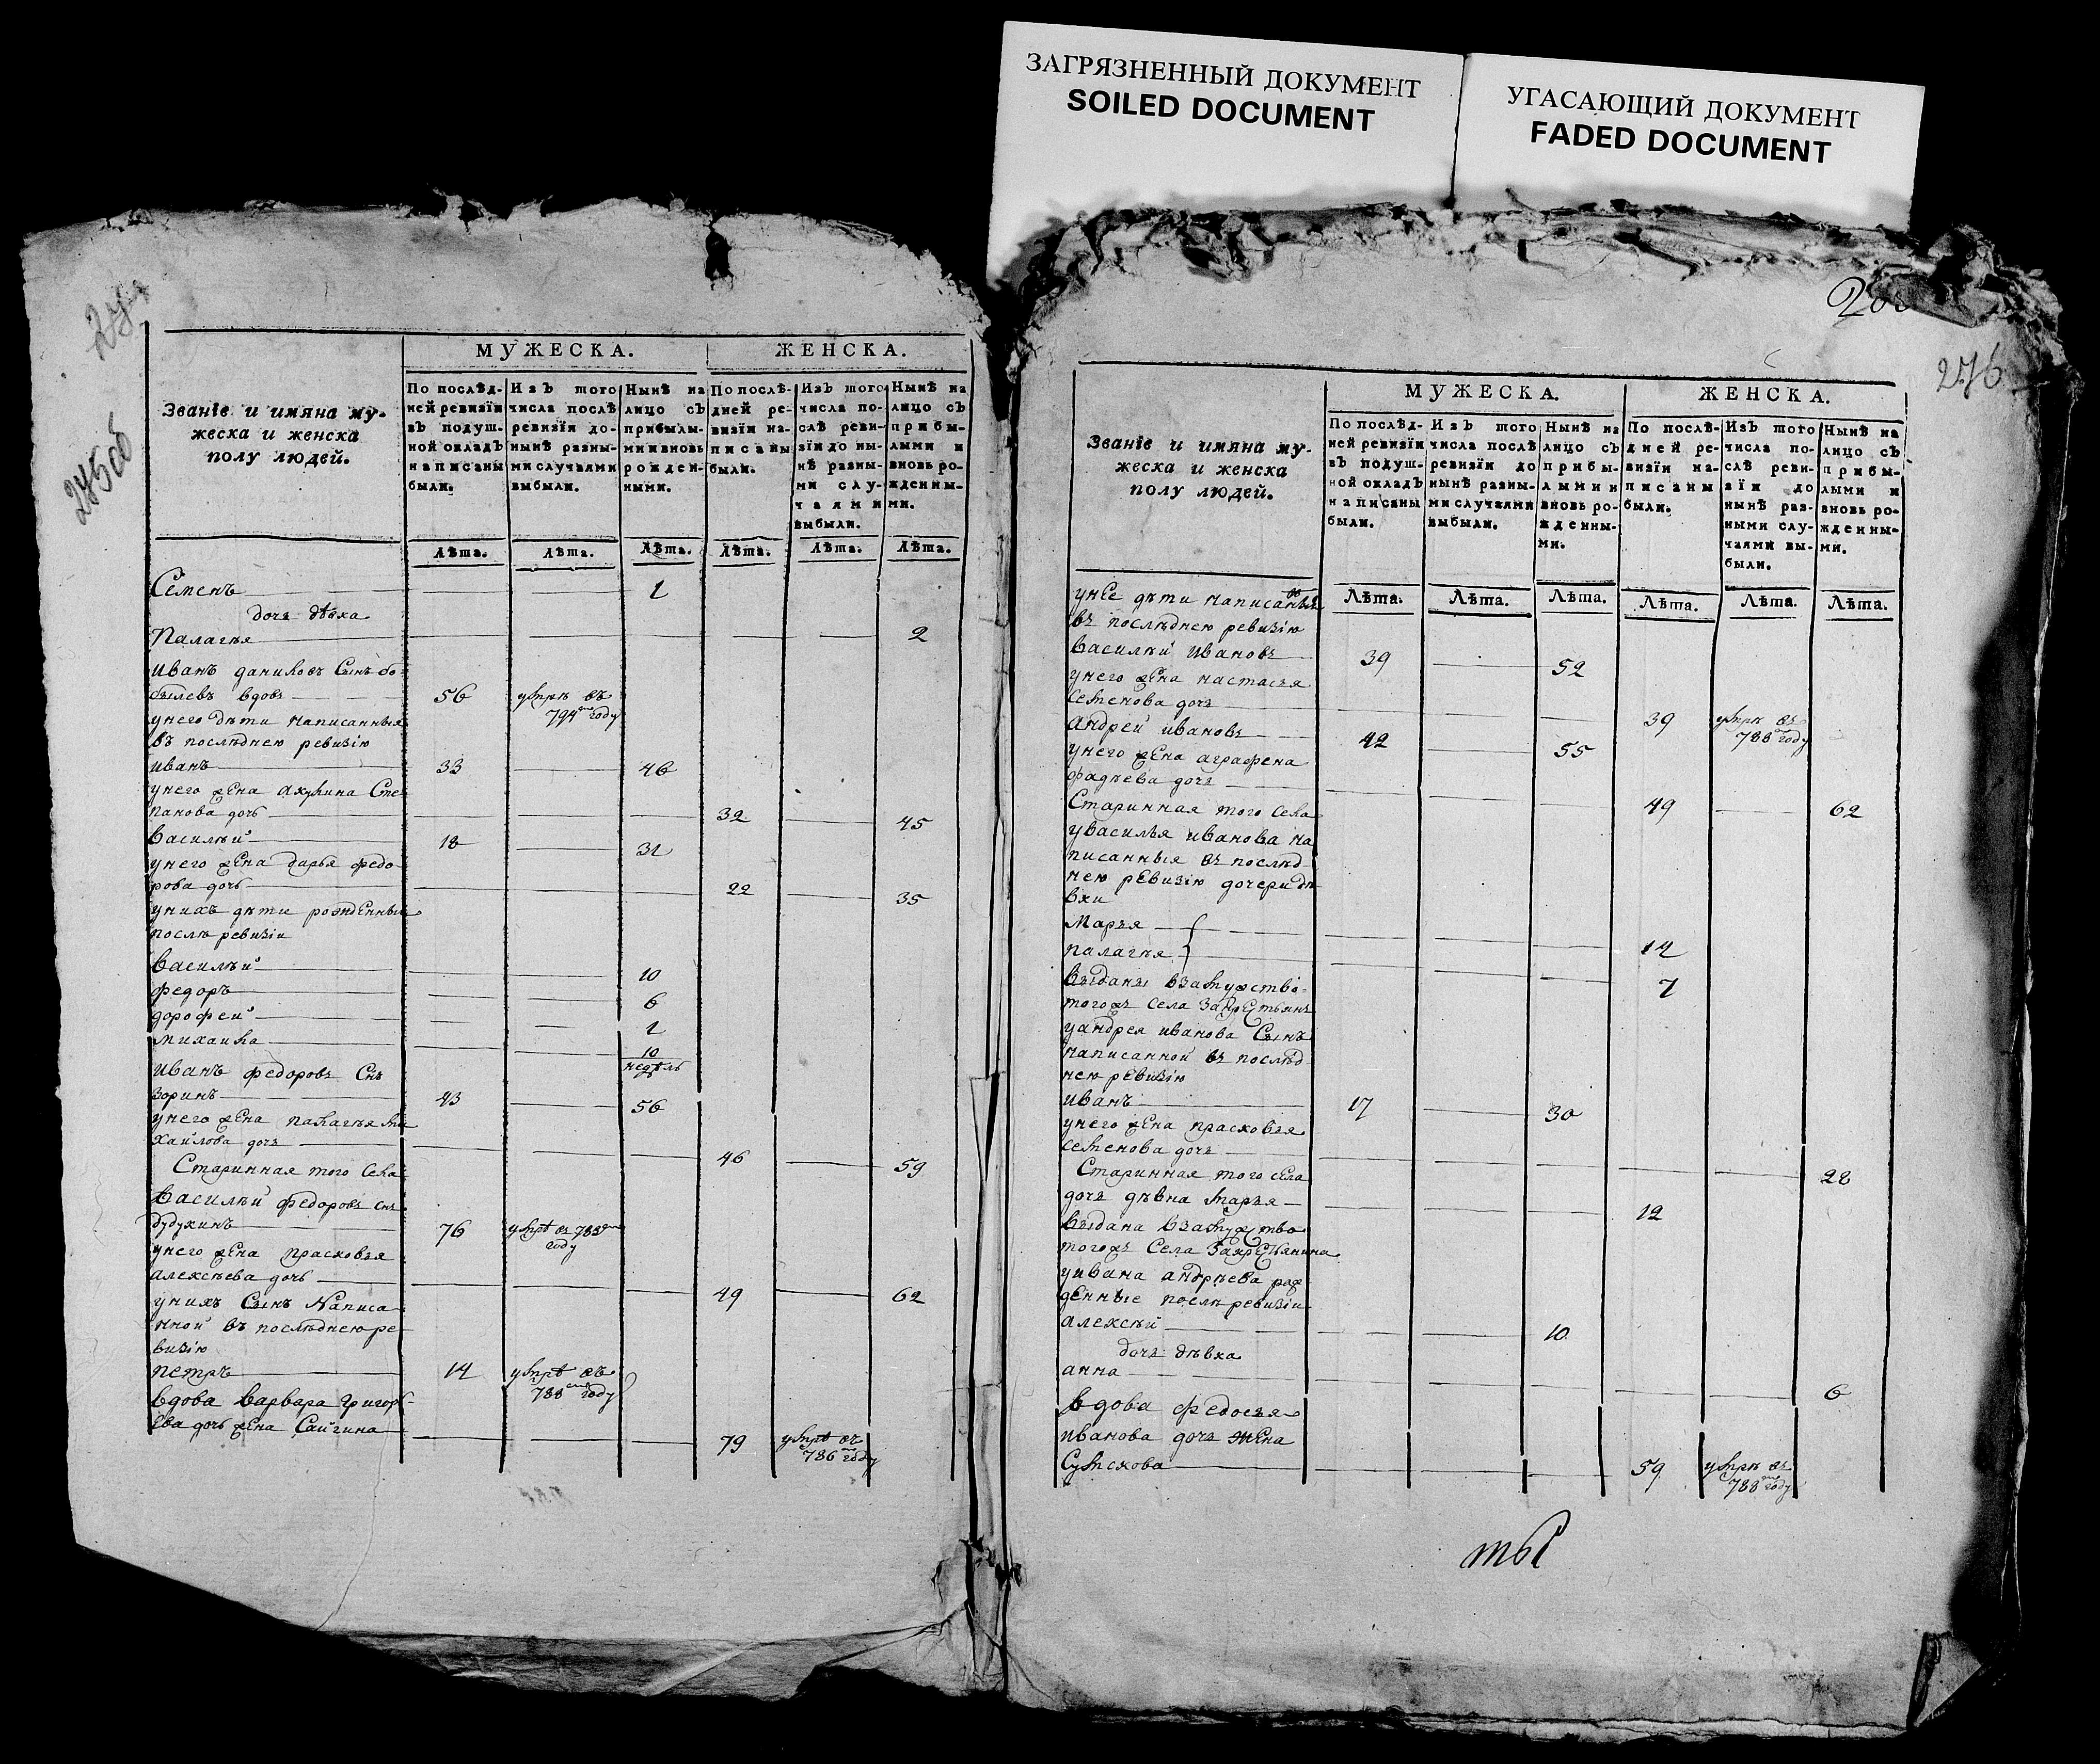 ЗАГРЯЗНЕННЫЙ ДОКУМЕНТ
SOILED DOCUMENT
УГАСАЮЩИЙ ДОКУМЕНТ
FADED DOCUMENT
275об
МУЖЕСКА. ЖЕНСКА.
Званіе и имяна му-
жеска и женска
полу людей.
По послѣд-
ней ревизіи
въ подуш-
ной окладъ
написаны
были.
Изъ того
числа послѣ
ревизіи до-
нынѣ разны-
ми случаями
выбыли.
Нынѣ на
лицо съ
прибылы-
ми и вновь
рожден-
ными.
По послѣ-
дней ре-
визіи на-
писаны
были.
Изъ того
числа по-
слѣ реви-
зіи до ны-
нѣ разны-
ми слу-
чаями
выбыли.
Нынѣ на
лицо съ
прибы-
лыми и
вновь ро-
жденны-
ми.
Лѣта. Лѣта. Лѣта. Лѣта. Лѣта. Лѣта.
Семенъ 1
дочь дѣвка
Палагья 2
Иванъ даниловъ Сынъ бо-
былевъ вдовъ 56 умре въ
794 году
унего дѣти написанныя
въ послѣднею ревизію
иванъ 33 46
унего жена акулина Сте
панова дочь 32 45
Василѣй 18 31
унего жена дарья федо
рова дочь 22 35
унихъ дѣти рожденныя
послѣ ревизіи
Василѣй 10
федоръ 6
дорофей 1
михаила 10
недѣль
Иванъ федоровъ Снъ
Зоринъ 43 56
унего жена палагья ми
хайлова дочь 46 59
Старинная того Села
Василѣй федоровъ снъ
дудукинъ 76 умре въ 782
году
унего жена прасковья
алексѣева дочь 49 62
унихъ Сынъ Написа
нной въ послѣднею ре
визію
петръ 14 умре въ
788 году
Вдова Варвара Григорь
ева дочь жена Сайгина 79 умре въ
786 году
276
МУЖЕСКА. ЖЕНСКА.
Званіе и имяна му-
жеска и женска
полу людей.
По послѣд-
ней ревизіи
въ подуш-
ной окладъ
написаны
были.
Изъ того
числа послѣ
ревизіи до
нынѣ разны-
ми случаями
выбыли.
Нынѣ на
лицо съ
прибы-
лыми и
вновь ро-
жденны-
ми.
По послѣ-
дней ре-
визіи на-
писаны
были.
Изъ того
числа по-
слѣ реви-
зіи до
нынѣ раз-
ными слу-
чаями вы-
были.
Нынѣ на
лицо съ
прибы-
лыми и
вновь ро-
жденны-
ми.
Лѣта. Лѣта. Лѣта. Лѣта. Лѣта. Лѣта.
унее дѣти написанныя
въ послѣднею ревизію
Василѣй Ивановъ 39 52
унего жена настасья
семенова дочь 39 умре въ
788 году
Андрей ивановъ 42 55
унего жена аграфена
фадѣева дочь 49 62
Старинная того Села
уВасилья иванова на
писанныя въ послѣд
нею ревизію дочери дѣ
вки
Марья 14
палагья 7
Выданы взамужство
того жъ села закрестьянъ
уандрея иванова Сынъ
написанной въ послѣд
нею ревизію
иванъ 17 30
унего жена прасковья
семенова дочь 28
Старинная того села
дочь дѣвка марья 12
выдана взамужство
того жъ Села закрестьянина
уивана андрѣева рож
денные послѣ ревизіи
алексѣй 10
дочь дѣвка
анна 6
Вдова федосья
иванова дочь жена
Сумскова 59 умре въ
788 году